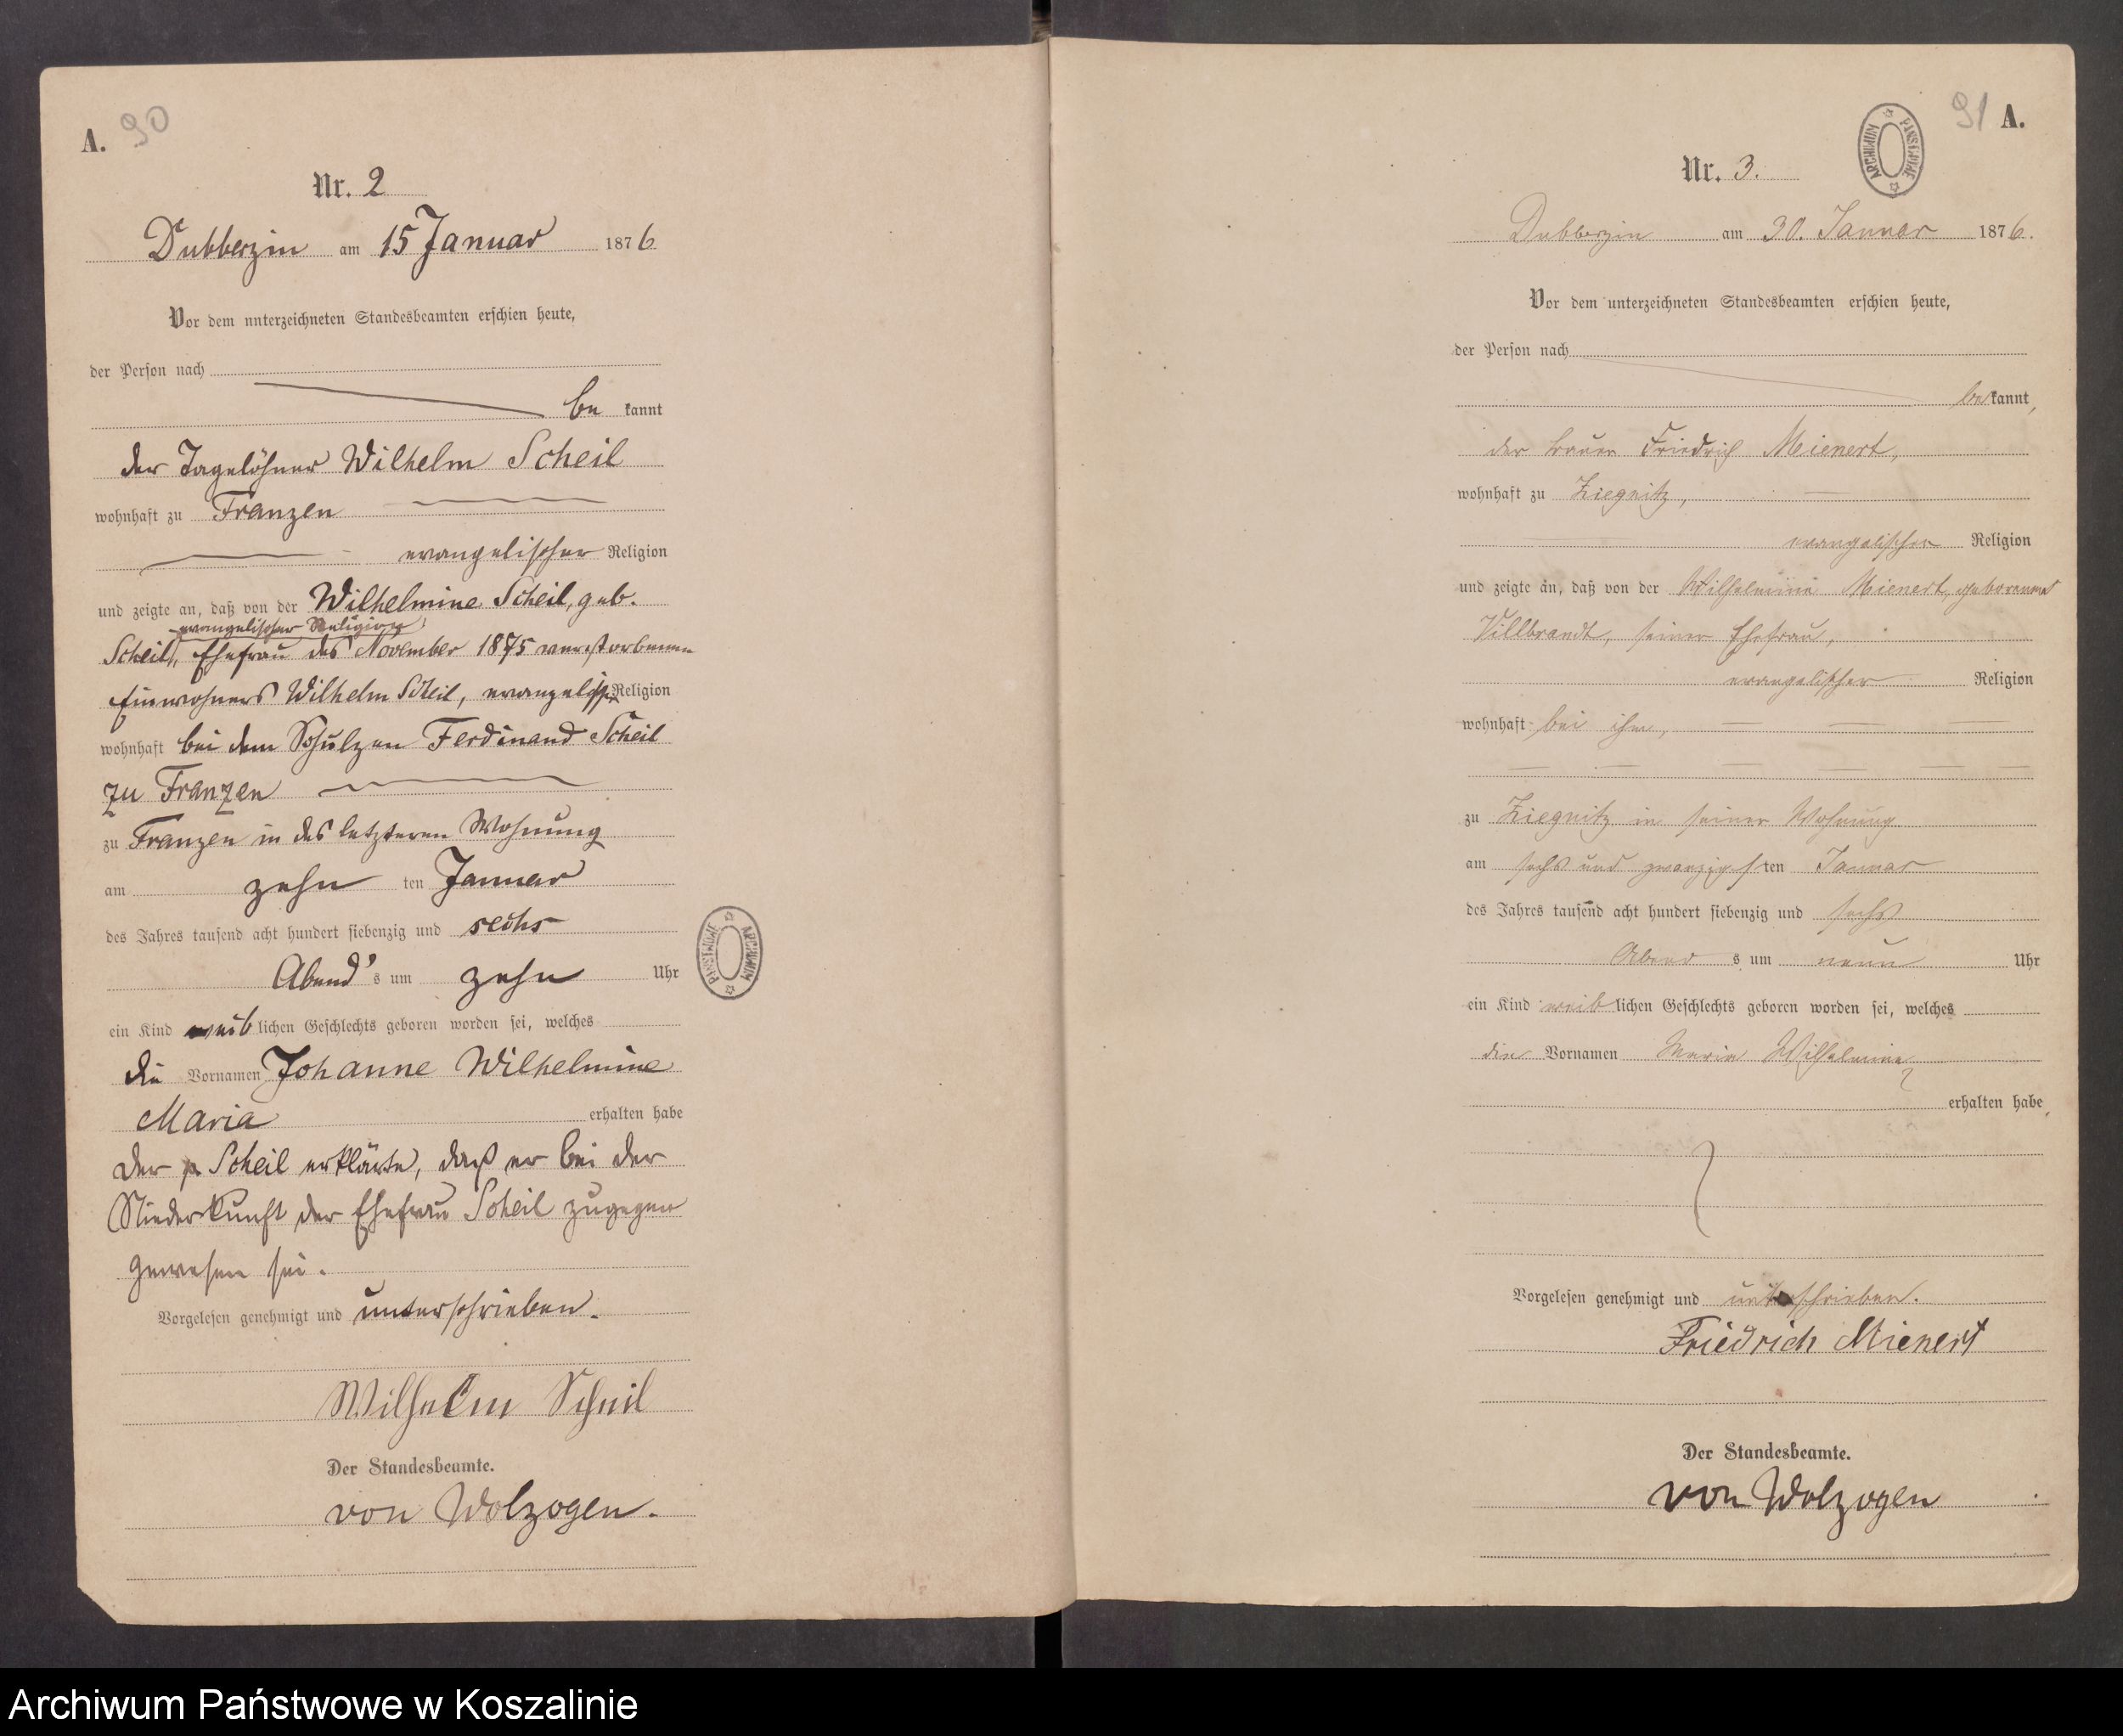 A. 90
Nr. 2
Dubberzin am 15 Januar 1876
Vor dem unterzeichneten Standesbeamten erschien heute,
der Person nach
be kannt
der Tagelöhner Wilhelm Scheil
wohnhaft zu Franzen
evangelischer Religion
und zeigte an, daß von der Wilhelmine Scheil, geb.
evangelischer Religion
Scheil, Ehefrau des November 1875 verstorbenen
Einwohners Wilhelm Scheil, evangelisch Religion
wohnhaft bei dem Schulzen Ferdinand Scheil
zu Franzen
zu Franzen in des letzteren Wohnung
am zehn ten Januar
des Jahres tausend acht hundert siebenzig und sechs
Abend's s um zehn Uhr
ein Kind weib lichen Geschlechts geboren worden sei, welches
die Vornamen Johanne Wilhelmine
Maria erhalten habe
Der p Scheil erklärte, daß er bei der
Niederkunft der Ehefrau Scheil zugegen
gewesen sei.
Vorgelesen genehmigt und unterschrieben.
Wilhelm Scheil
Der Standesbeamte.
von Wolzogen.
ARCHIWUM PAŃSTWOWE
91 A.
ARCHIWUM PAŃSTWOWE
Nr. 3.
Dubberzin am 30. Januar 1876.
Vor dem unterzeichneten Standesbeamten erschien heute,
der Person nach
bekannt,
der Bauer Friedrich Mienert,
wohnhaft zu Ziegnitz,
evangelischer Religion
und zeigte an, daß von der Wilhelmine Mienert, geborenen
Villbrandt, seiner Ehefrau,
evangelischer Religion
wohnhaft bei ihm,
zu Ziegnitz in seiner Wohnung
am sechs und zwanzigsten Januar
des Jahres tausend acht hundert siebenzig und sechs
Abend s um neun Uhr
ein Kind weib lichen Geschlechts geboren worden sei, welches
die Vornamen Maria Wilhelmine
erhalten habe,
Vorgelesen genehmigt und unterschrieben.
Friedrich Mienert
Der Standesbeamte.
von Wolzogen
Archiwum Państwowe w Koszalinie